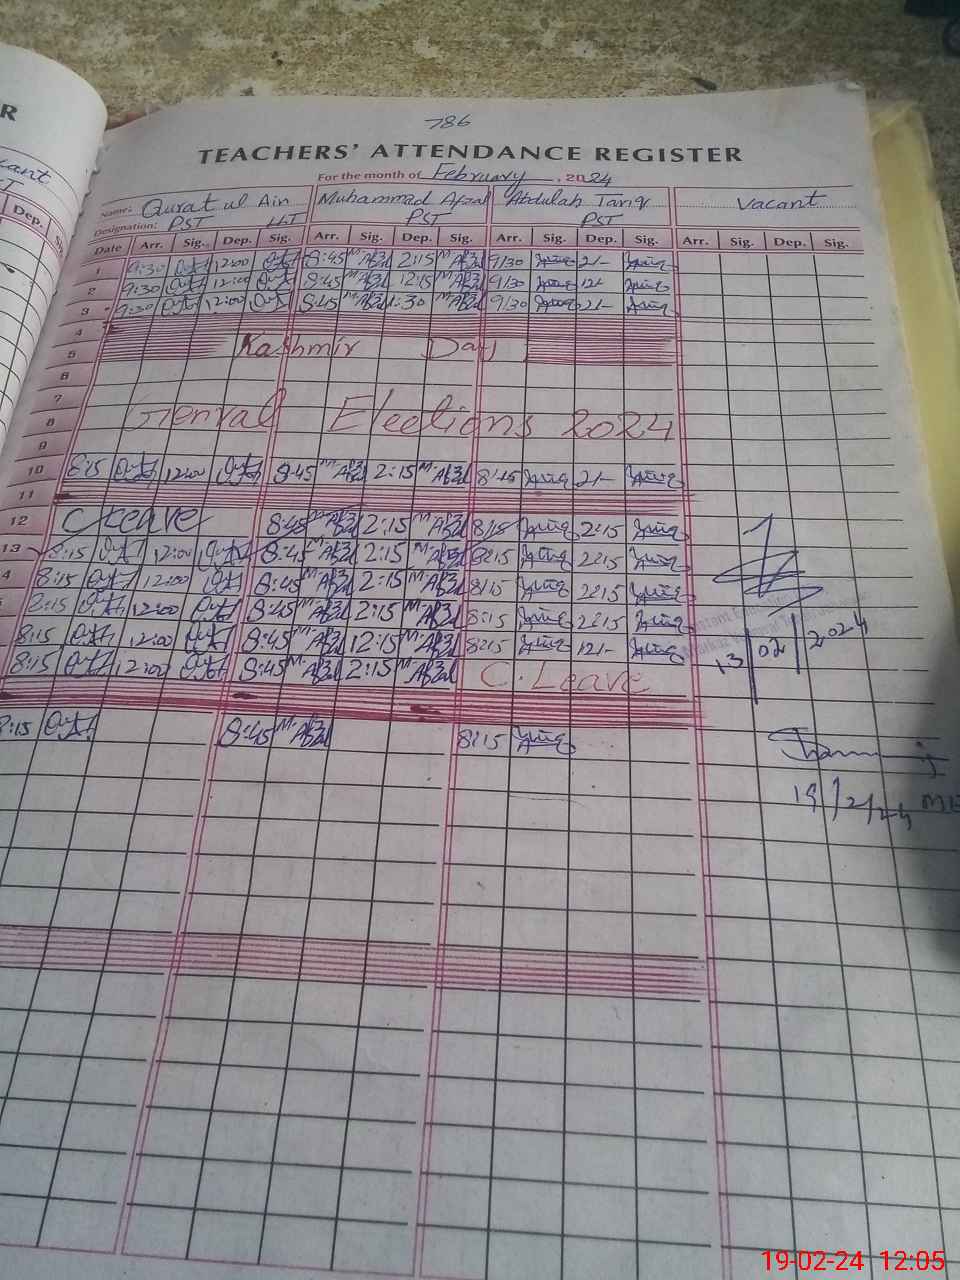 R
786
TEACHERS' ATTENDANCE REGISTER
For the month of February, 2024
Name: Qurat ul Ain Muhammad Afzal Abdulah Tariq Vacant
Designation: PST PST PST
Dep. Date Arr. Sig. Dep. Sig. Arr. Sig. Dep. Sig. Arr. Sig. Dep. Sig. Arr. Sig. Dep. Sig.
1 9:30 12:00 8:45 M Afzal 2:15 M Afzal 9/30 2/-
2 9:30 12:00 8:45 M Afzal 12:15 M Afzal 9/30 12/-
3 9:30 12:00 8:45 M Afzal 1:30 M Afzal 9/30 2/-
4
5 Kashmir Day
6
7
8 Genral Elections 2024
9
10 8:15 12:00 8:45 M. Afzal 2:15 M. Afzal 8/15 2/-
11
12 C Leave 8:45 M Afzal 2:15 M Afzal 8/15 2:15
13 8:15 12:00 8:45 M Afzal 2:15 M Afzal 8:15 2:15
4 8:15 12:00 8:45 M Afzal 2:15 M Afzal 8/15 2:15
8:15 12:00 8:45 M Afzal 2:15 M Afzal 8:15 2:15
8:15 12:00 8:45 M Afzal 12:15 M Afzal 8:15 12/-
8:15 12:00 8:45 M Afzal 2:15 M Afzal C. Leave
13/02/2024
8:15 8:45 M. Afzal 8:15
19/2/24
19-02-24 12:05